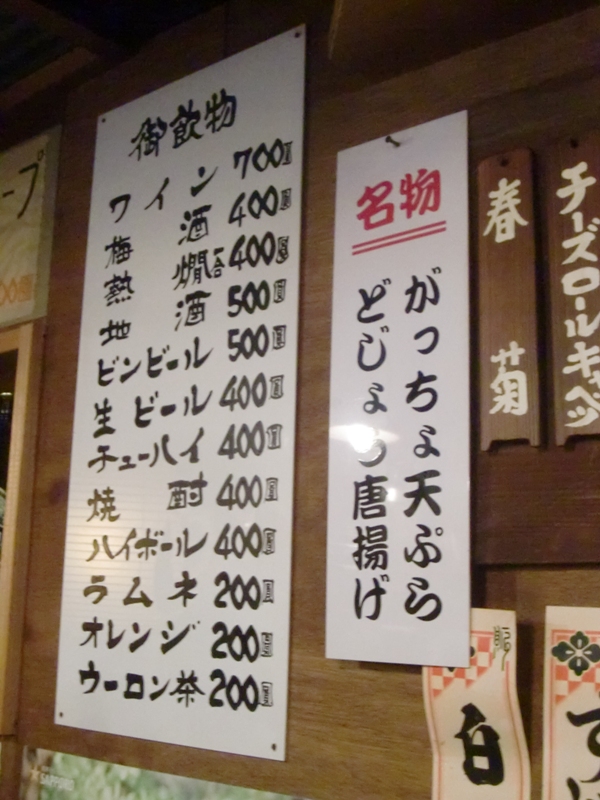 ープ
御飲物
ワイン 700円
梅酒 400円
熱燗 一合 400円
地酒 500円
ビンビール 500円
生ビール 400円
チューハイ 400円
焼酎 400円
ハイボール 400円
ラムネ 200円
オレンジ 200円
ウーロン茶 200円
名物
がっちょ天ぷら
どじょう唐揚げ
春菊
チーズロールキャベツ
白
SAPPORO